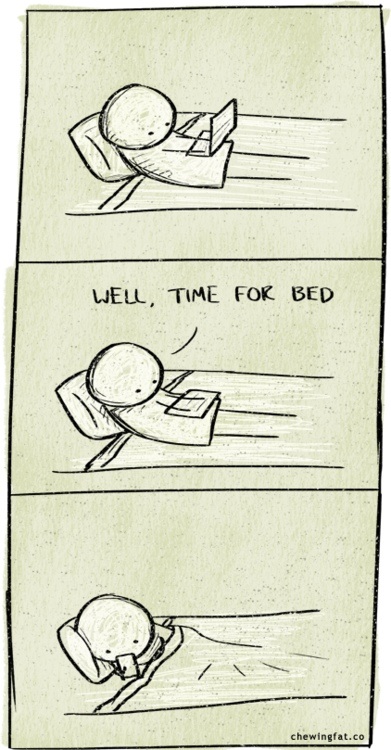 WELL, TIME FOR BED
chewingfat.co